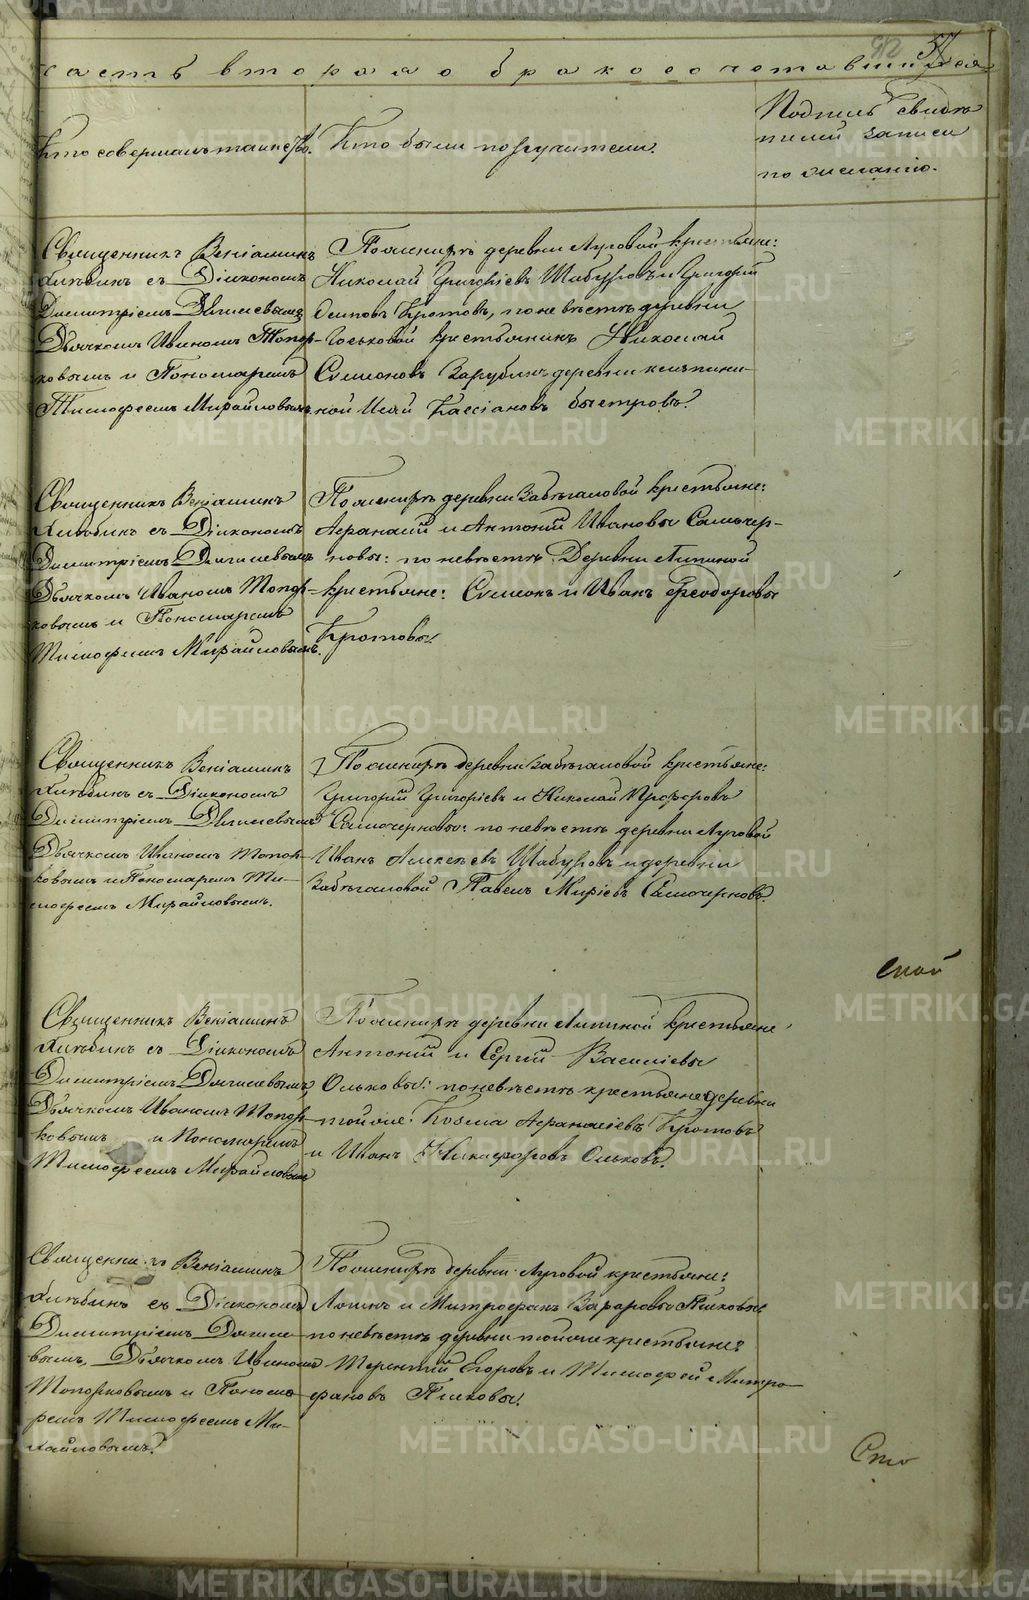 92 57
часть вторая о бракосочетавшихся
Кто совершалъ таинство.
Кто были поручители.
Подпись свидѣ
телей записи
по желанію.
Священникъ Веніаминъ
Хлѣбинъ съ Діакономъ
Димитріемъ
Дьячкомъ Иваномъ Топор-
ковымъ и Пономаремъ
Тимофеемъ Михайловымъ.
По женихѣ деревни Луговой крестьяне:
Николай Григоріевъ Шабуровъ и Григорій
Осиповъ Кротовъ, по невѣстѣ деревни
крестьянинъ Николай
Симеоновъ Зарубинъ деревни
Исай Кассіановъ Быстровъ.
Священникъ Веніаминъ
Хлѣбинъ съ Діакономъ
Димитріемъ
Дьячкомъ Иваномъ Топор-
ковымъ и Пономаремъ
Тимофеемъ Михайловымъ.
По женихѣ деревни Забѣгаловой крестьяне:
Афанасій и Антоній Ивановы Самочер-
новы: по невѣстѣ Деревни Липиной
крестьяне: Симеонъ и Иванъ Феодоровы
Кротовы.
Священникъ Веніаминъ
Хлѣбинъ съ Діакономъ
Димитріемъ
Дьячкомъ Иваномъ Топор-
ковымъ и Пономаремъ Ти-
мофеемъ Михайловымъ.
По женихѣ деревни Забѣгаловой крестьяне:
Григорій Григоріевъ и Николай Прохоровъ
Самочерновы: по невѣстѣ деревни Луговой
Иванъ Алексѣевъ Шабуровъ и деревни
Забѣгаловой Павелъ Самочерновъ.
Священникъ Веніаминъ
Хлѣбинъ съ Діакономъ
Димитріемъ
Дьячкомъ Иваномъ Топор-
ковымъ и Пономаремъ
Тимофеемъ Михайловымъ
По женихѣ деревни Липиной крестьяне
Антоній и Сергій Василіевы
Ольковы: по невѣстѣ крестьяне деревни
той же: Козма Афанасіевъ Кротовъ
и Иванъ Никифоровъ Ольковъ.
Священникъ Веніаминъ
Хлѣбинъ съ Діакономъ
Димитріемъ
вымъ, Дьячкомъ Иваномъ
Топорковымъ и Понома-
ремъ Тимофеемъ Ми-
хайловымъ.
По женихѣ деревни Луговой крестьяне:
Логинъ и Митрофанъ Захаровы Пѣсковы
по невѣстѣ деревни той же крестьяне:
Терентій Егоровъ и Тимофей Митро-
фановъ Пѣсковы.
METRIKI.GASO-URAL.RU